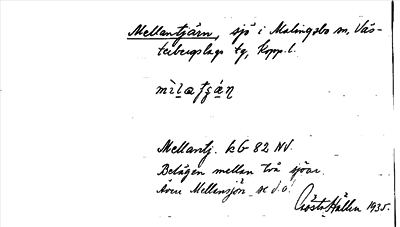 Mellantjärn, sjö i Malingsbo sn, Väs-
terbergslags tg, Kopp. l.
Mellantj. kb 82 NV.
Belägen mellan två sjöar.
Även Mellansjön se d.o!
Gösta Hällen 1935.